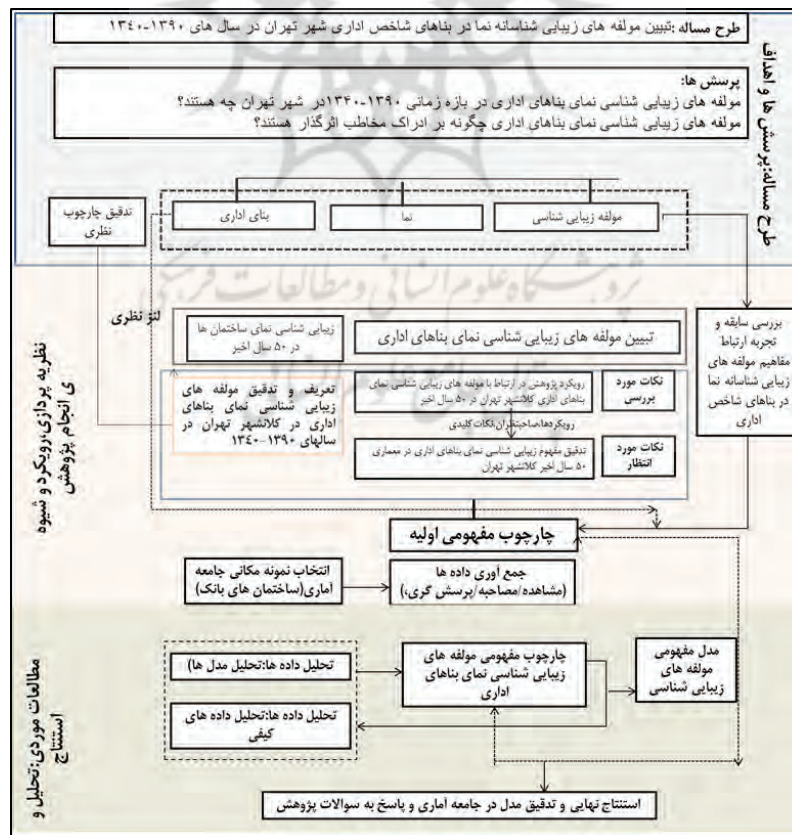 طرح مساله :تبیین مولفه های زیبایی شناسانه نما در بناهای شاخص اداری شهر تهران در سال های ۱۳۹۰-۱۳٤۰
پرسش ها:
مولفه های زیبایی شناسی نمای بناهای اداری در بازه زمانی ۱۳۹۰-۱۳۴۰در شهر تهران چه هستند؟
مولفه های زیبایی شناسی نمای بناهای اداری چگونه بر ادراک مخاطب اثرگذار هستند؟
طرح مساله:پرسش ها و اهداف
مولفه زیبایی شناسی
نما
بنای اداری
تدقیق چارچوب
نظری
پژوهشگاه علوم انسانی و مطالعات فرهنگی
پرتال جامع علوم انسانی
بررسی سابقه و
تجربه ارتباط
مفاهیم مولفه های
زیبایی شناسانه نما
در بناهای شاخص
اداری
لنز نظری
تبیین مولفه های زیبایی شناسی نمای بناهای اداری
زیبایی شناسی نمای ساختمان ها
در ۵۰ سال اخیر
نکات مورد
بررسی
رویکرد پژوهش در ارتباط با مولفه های زیبایی شناسی نمای
بناهای اداری کلانشهر تهران در ۵۰ سال اخیر
رویکردها،صاحبنظران،نکات کلیدی
نکات مورد
انتظار
تدقیق مفهوم زیبایی شناسی نمای بناهای اداری در معماری
۵۰ سال اخیر کلانشهر تهران
تعریف و تدقیق مولفه های
زیبایی شناسی نمای بناهای
اداری در کلانشهر تهران در
سالهای ۱۳۹۰-۱۳٤۰
نظریه پردازی،رویکرد و شیوه
ی انجام پژوهش
چارچوب مفهومی اولیه
جمع آوری داده ها
(مشاهده/مصاحبه/پرسش گری،)
انتخاب نمونه مکانی جامعه
آماری(ساختمان های بانک)
مطالعات موردی:تحلیل و
استنتاج
مدل مفهومی
مولفه های
زیبایی شناسی
چارچوب مفهومی مولفه های
زیبایی شناسی نمای بناهای
اداری
تحلیل داده ها:تحلیل مدل ها)
تحلیل داده ها:تحلیل داده های
کیفی
استنتاج نهایی و تدقیق مدل در جامعه آماری و پاسخ به سوالات پژوهش